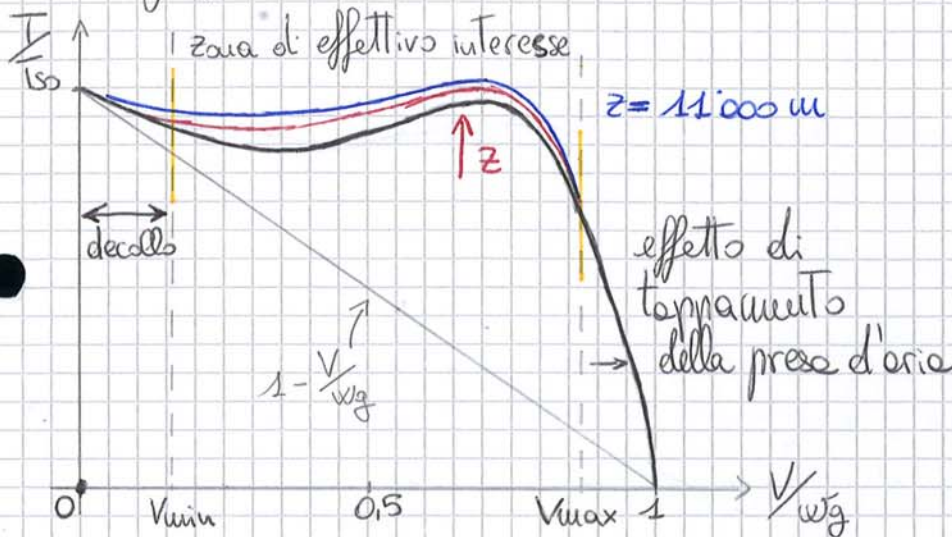 T/Iso
zona di effettivo interesse
z = 11'000 m
z
decollo
effetto di
tappamento
della presa d'aria
1 - V/wg
0
Vmin
0,5
Vmax
1
V/wg